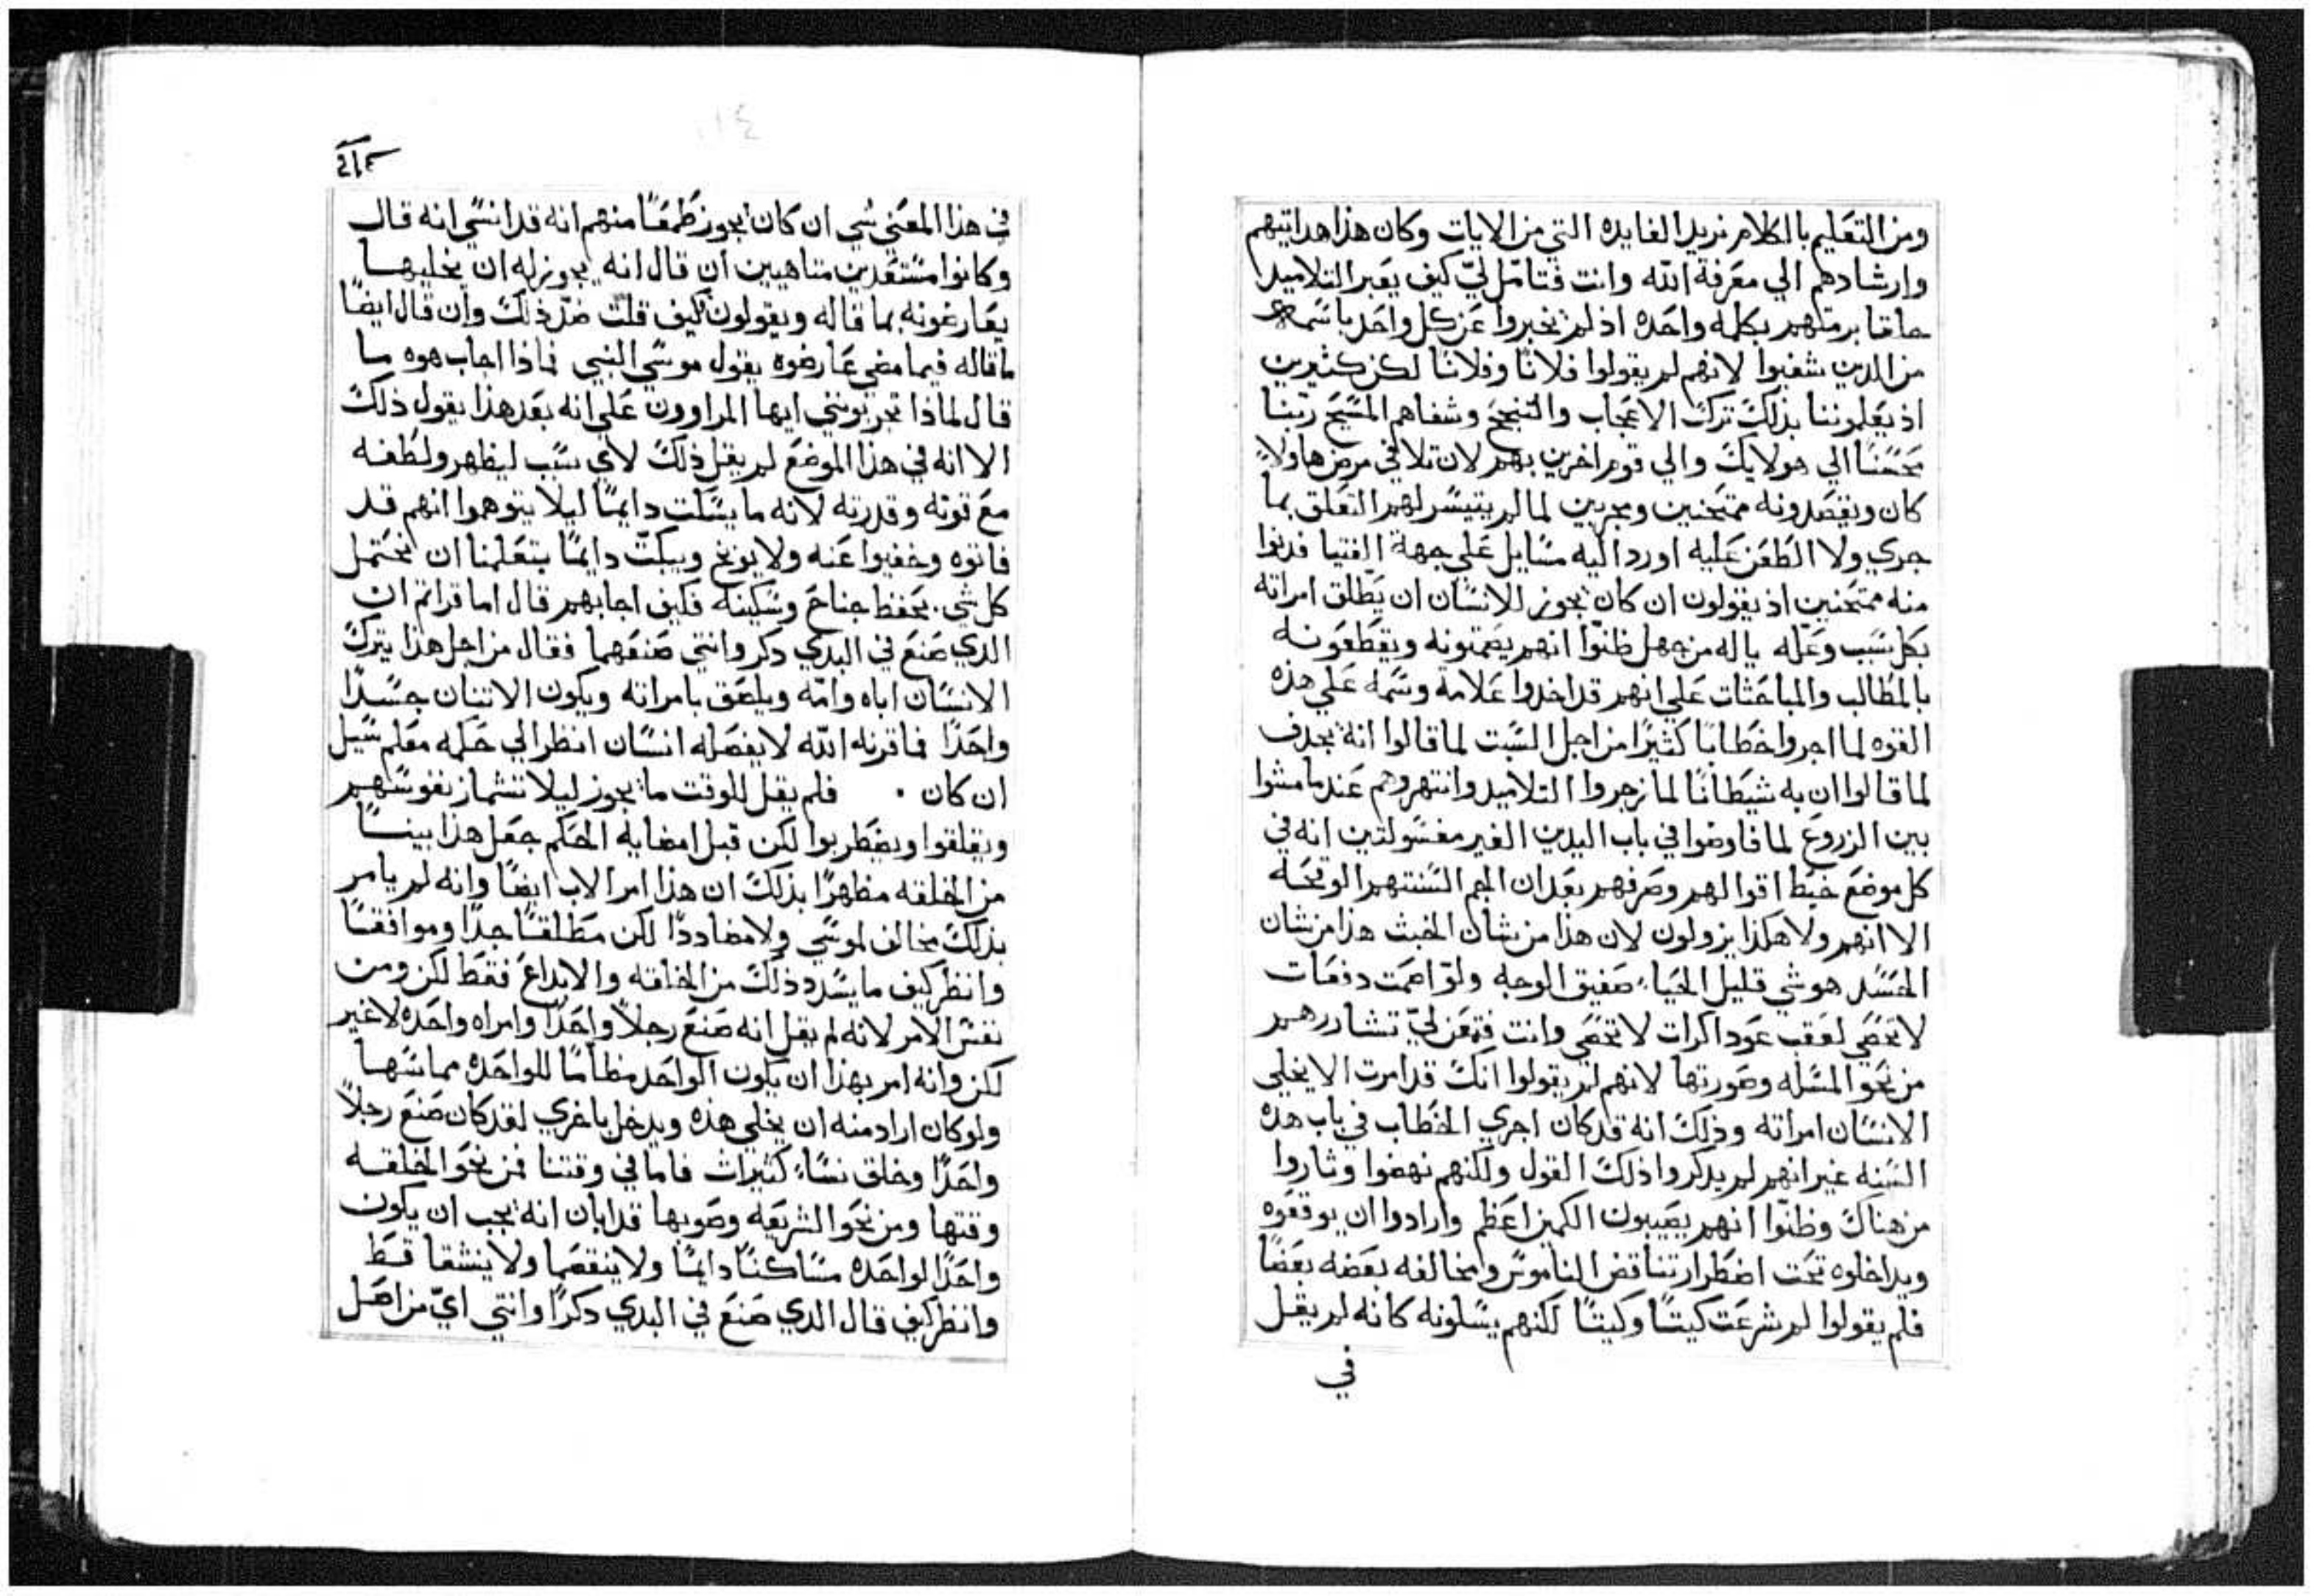 ومن التعليم بالكلام نريد الفايده التي من الايات وكان هذا هدايتهم
وارشادهم الي معرفة الله وانت فتامل ليّ كيف يعبر التلاميد
برمتهم بكلمه واحده اذ لم يخبروا عن كل واحد باسمه
من الدين شفيوا لانهم لم يقولوا فلانًا وفلانًا لكن كثيرين
اذ يعلموننا بذلك ترك الاعجاب والتبجح وشفاهم المسيح ربنا
محسنًا الي هولايك والي قوم اخرين بهم لان تلافي مرض هاولاً
كان ويقصدونه ممتحنين ومجربين لما لم يتيسر لهم التعلق بما
جري ولا الطعن عليه اورد اليه مسايل علي جهة الفتيا فدنوا
منه ممتحنين اذ يقولون ان كان يجوز للانسان ان يطلق امراته
بكل سبب وعله ياله من جهل ظنوّا انهم يصمتونه ويقطعونه
بالمطالب والمباحثات علي انهم قد اخدوا علامة وسمة علي هذه
القوه لما اجروا خطابًا كثيرًا من اجل السبت لما قالوا انه يجدف
لما قالوا ان به شيطانًا لما زجروا التلاميد وانتهروهم عندما مشوا
بين الزروع لما فاوضوا في باب اليدين الغير مغسولتين انه في
كل موضع خيط اقوالهم وصرفهم بعد ان الجم السنتهم الوقحه
الا انهم ولا هكذا يزولون لان هذا من شان الخبث هذا من شان
الحسد هو شي قليل الحياء صفيق الوجه ولو اصمت دفعات
لا تحصي لعقب عودا كرات لا تحصي وانت فتمعن ليّ تشاررهم
من نحو المسله وصورتها لانهم لم يقولوا انك قد امرت الا يخلي
الانسان امراته وذلك انه قد كان اجري الخطاب في باب هذه
السنه غير انهم لم يدكروا ذلك القول ولكنهم نهضوا وثاروا
من هناك وظنّوا انهم يصيبون الكمين اعظم وارادوا ان يوقعوه
ويداخلوه تحت اضطرار تناقض الناموس ومخالفه بعضه بعضًا
فلم يقولوا لم شرعت كيتًا وكيتًا لكنهم يسلونه كانه لم يقل
في
في هذا المعني شي ان كان يجوز طمعًا منهم انه قد انسي انه قال
وكانوا مستعدين متاهبين ان قال انه يجوز له ان يخليها
يعارضونه بما قاله ويقولون كيف قلت ضدّ ذلك وان قال ايضًا
ما قاله فيما مضي عارضوه بقول موسي النبي فماذا اجاب هوه ما
قال لماذا تجربونني ايها المراوون علي انه بعد هذا يقول ذلك
الا انه في هذا الموضع لم يقل ذلك لاي سبب ليظهر ولطفه
مع قوته وقدرته لانه ما يسكت دايمًا ليلا يتوهموا انهم قد
فاتوه وخفيوا عنه ولا يوبخ ويبكتّ دايمًا بتعلمنا ان نحتمل
كل شي بحفظ جناح وسكينه فكيف اجابهم قال اما قراتم ان
الدي صنع في البدي دكر وانثي صنعهما فقال من اجل هذا يترك
الانسان اباه وامّه ويلصق بامراته ويكون الاتنان جسدًا
واحدًا فما قرنه الله لا يفصله انسان انظر الي حكمه معلم سيل
ان كان . فلم يقل للوقت ما يجوز ليلا تشماز نفوسهم
ويقلقوا ويضطربوا لكن قبل امضايه الحكم جعل هذا بينًا
من الخلقه مظهرًا بذلك ان هذا امر الاب ايضًا وانه لم يامر
بذلك مخالف لموسي ولا مضاددًا لكن مطلقًا جدًا وموافقًا
وانظر كيف ما يشدد ذلك من الخلقه والابداع فقط لكن ومن
نفس الامر لانه لم يقل انه صنع رجلاً واحدًا وامراه واحده لا غير
لكن وانه امر بهذا ان يكون الواحد مظامًا للواحده مماسها
ولو كان اراد منه ان يخلي هذه ويدخل باخري لقد كان صنع رجلاً
واحدًا وخلق نساء كثيرات فاما في وقتنا فمن نحو الخلقه
وقتها ومن نحو الشريعه وصوبها قد ابان انه يجب ان يكون
واحدًا لواحده مساكنًا دايمًا ولا ينقصما ولا ينشقا قط
وانظر كيف قال الدي صنع في البدي دكرًا وانثي ايّ من اصل